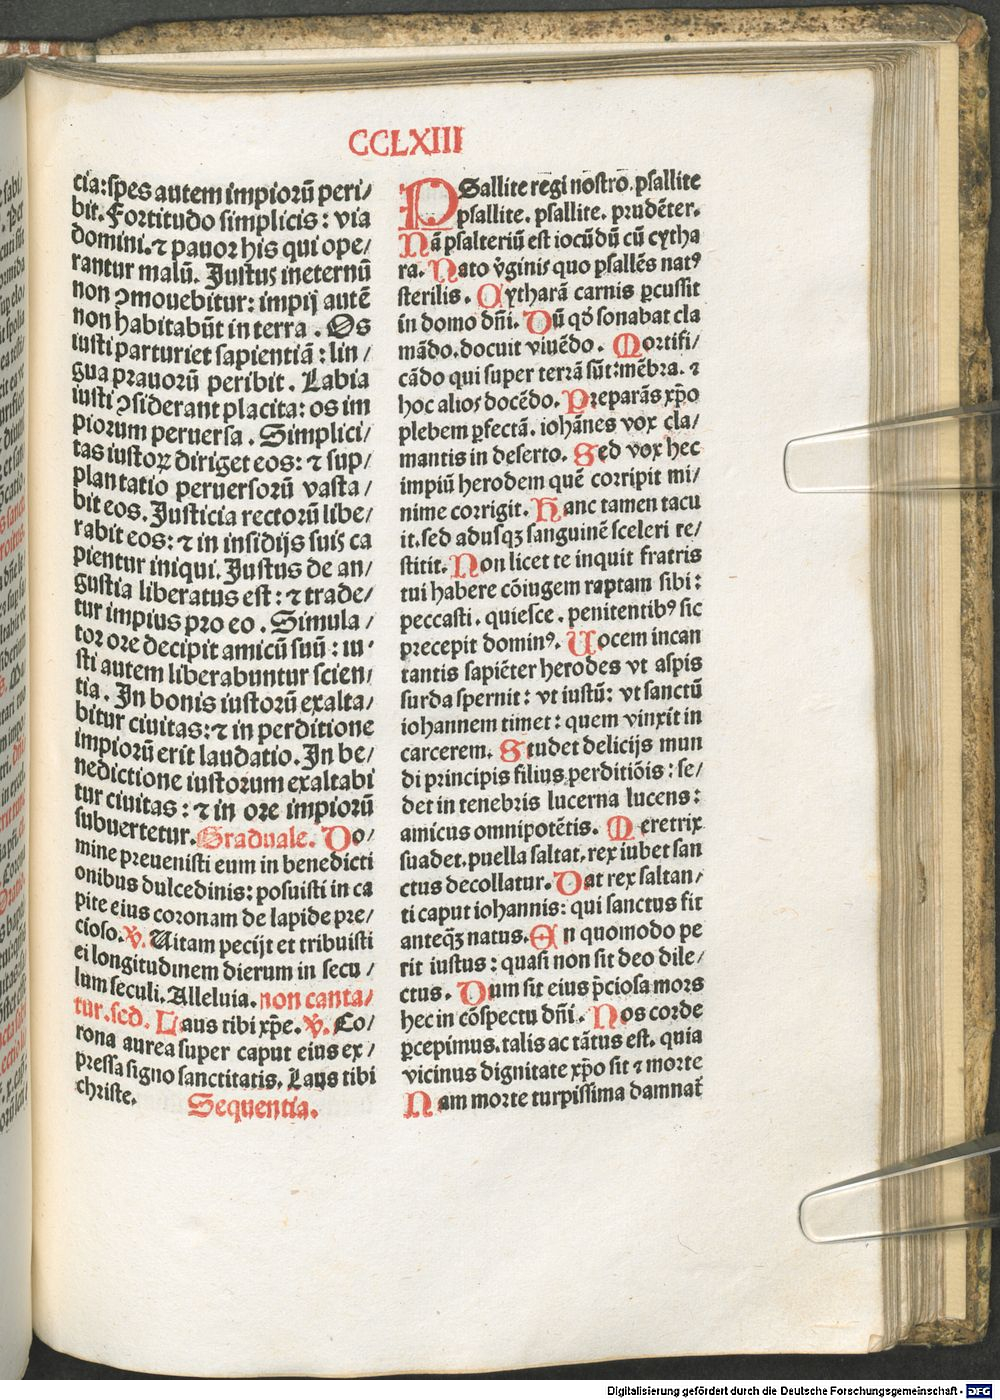 CCLXIII
cia: spes autem impiorū peri/
bit. Fortitudo simplicis: via
domini. ⁊ pauor his qui ope/
rantur malū. Justus ineternū
non ꝯmouebitur: impij autē
non habitabūt in terra. Os
iusti parturiet sapientiā: lin/
gua prauorū peribit. Labia
iusti ꝯsiderant placita: os im
piorum peruersa. Simplici/
tas iustoꝝ diriget eos: ⁊ sup/
plantatio peruersorū vasta/
bit eos. Justicia rectorū libe/
rabit eos: ⁊ in insidijs suis ca
pientur iniqui. Justus de an/
gustia liberatus est: ⁊ trade/
tur impius pro eo. Simula/
tor ore decipit amicū suū: iu
sti autem liberabuntur scien/
tia. In bonis iustorū exalta/
bitur ciuitas: ⁊ in perditione
impiorū erit laudatio. In be/
nedictione iustorum exaltabi
tur ciuitas: ⁊ in ore impiorū
subuertetur. Graduale. Do/
mine preuenisti eum in benedicti
onibus dulcedinis: posuisti in ca
pite eius coronam de lapide pre/
cioso. ℣. Uitam pecijt et tribuisti
ei longitudinem dierum in secu/
lum seculi. Alleluia. non canta/
tur. sed. Laus tibi xp̄e. ℣. Co/
rona aurea super caput eius ex/
pressa signo sanctitatis. Laus tibi
christe. Sequentia.
PSallite regi nostro. psallite
psallite. psallite. prudēter.
Nā psalteriū est iocūdū cū cytha
ra. Nato v̄ginis quo psallēs natꝰ
sterilis. Cytharā carnis ꝑcussit
in domo dn̄i. Dū qď sonabat cla
mādo. docuit viuēdo. Mortifi/
cādo qui super terrā sūt: mēbra. ⁊
hoc alios docēdo. Preparās xp̄o
plebem ꝑfectā. iohānes vox cla/
mantis in deserto. Sed vox hec
impiū herodem quē corripit mi/
nime corrigit. Hanc tamen tacu
it. sed adusqꝫ sanguinē sceleri re/
stitit. Non licet te inquit fratris
tui habere cōiugem raptam sibi:
peccasti. quiesce. penitentibꝰ sic
precepit dominꝰ. Uocem incan
tantis sapiēter herodes vt aspis
surda spernit: vt iustū: vt sanctū
iohannem timet: quem vinxit in
carcerem. Studet delicijs mun
di principis filius perditiōis: se/
det in tenebris lucerna lucens:
amicus omnipotētis. Meretrix
suadet. puella saltat. rex iubet san
ctus decollatur. Dat rex saltan/
ti caput iohannis: qui sanctus fit
anteqꝫ natus. En quomodo pe
rit iustus: quasi non sit deo dile/
ctus. Dum sit eius p̄ciosa mors
hec in cōspectu dn̄i. Nos corde
ꝑcepimus. talis ac tātus est. quia
vicinus dignitate xp̄o sit ⁊ morte
Nam morte turpissima damnat̄
Digitalisierung gefördert durch die Deutsche Forschungsgemeinschaft - DFG